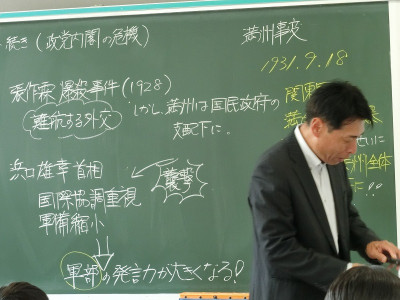 続き(政党内閣の危機)
張作霖爆殺事件(1928)
難航する外交
しかし、満州は国民政府の
支配下に。
浜口雄幸首相
国際協調重視
軍備縮小
襲撃
軍部の発言力が大きくなる!
満州事変
1931.9.18
関東軍
満州
州全体
に!!